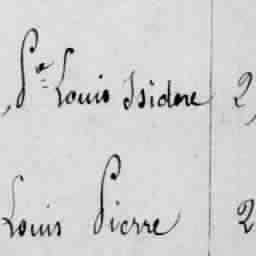 , Pre Louis Isidore 2,
Louis Pierre 2